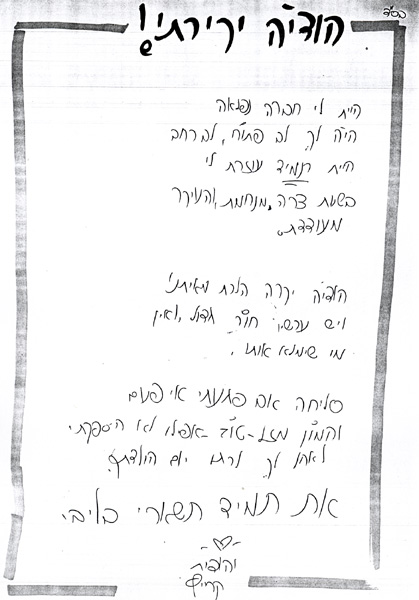 בס"ד
הודיה יקירתי!
היית לי חברה נפלאה
היה לך לב פתוח, לב רחב
היית תמיד עוזרת לי
בשעת צרה, מנחמת, והעיקר
מעודדת.
הודיה יקרה הלכת מאיתנו
ויש עכשיו חור גדול, ואין
מי שימלא אותו.
סליחה אם פגעתי אי פעם
והמון מזל-טוב-אפילו לא הספקתי
לאחל לך לרגל יום הולדתך.
את תמיד תשארי בליבי.